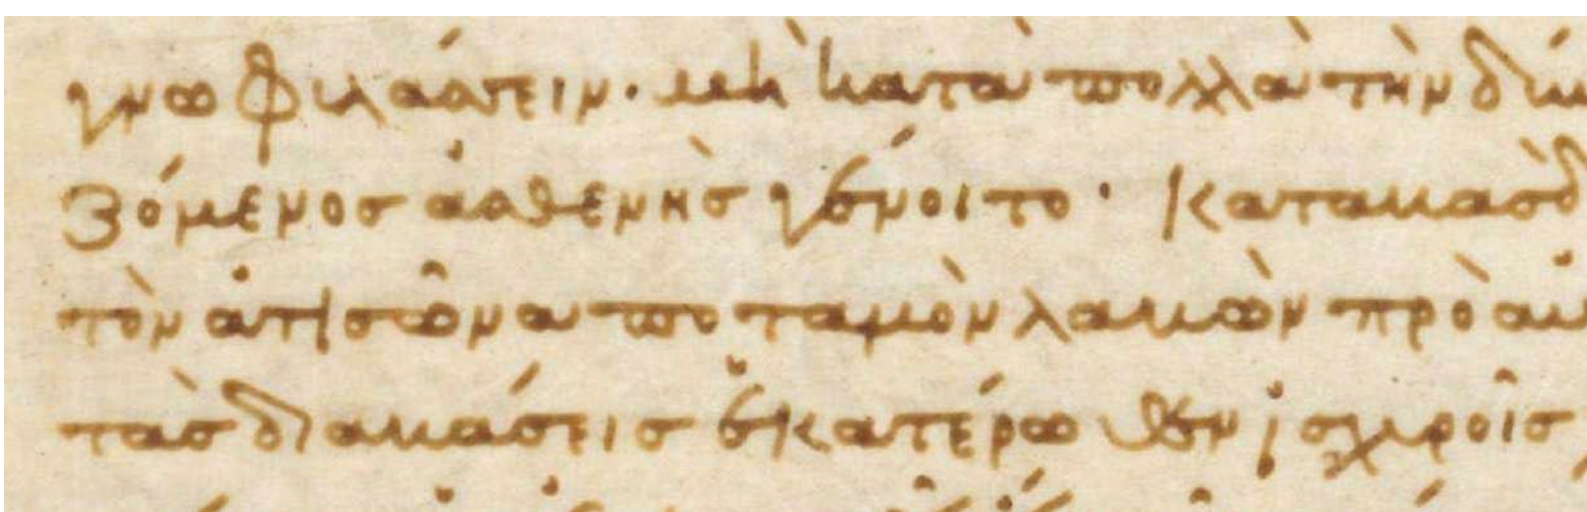 γνω φυλάττειν· μὴ κατὰ πολλὰ τὴν δύ
ζόμενος ἀσθενὴς γένοιτο· καταβὰς δ
τὸν ἀτισῶνα ποταμὸν λαβὼν πρὸ αὑ
τὰς διαβάσεις ἑκατέρωθεν ἰσχυροῖς